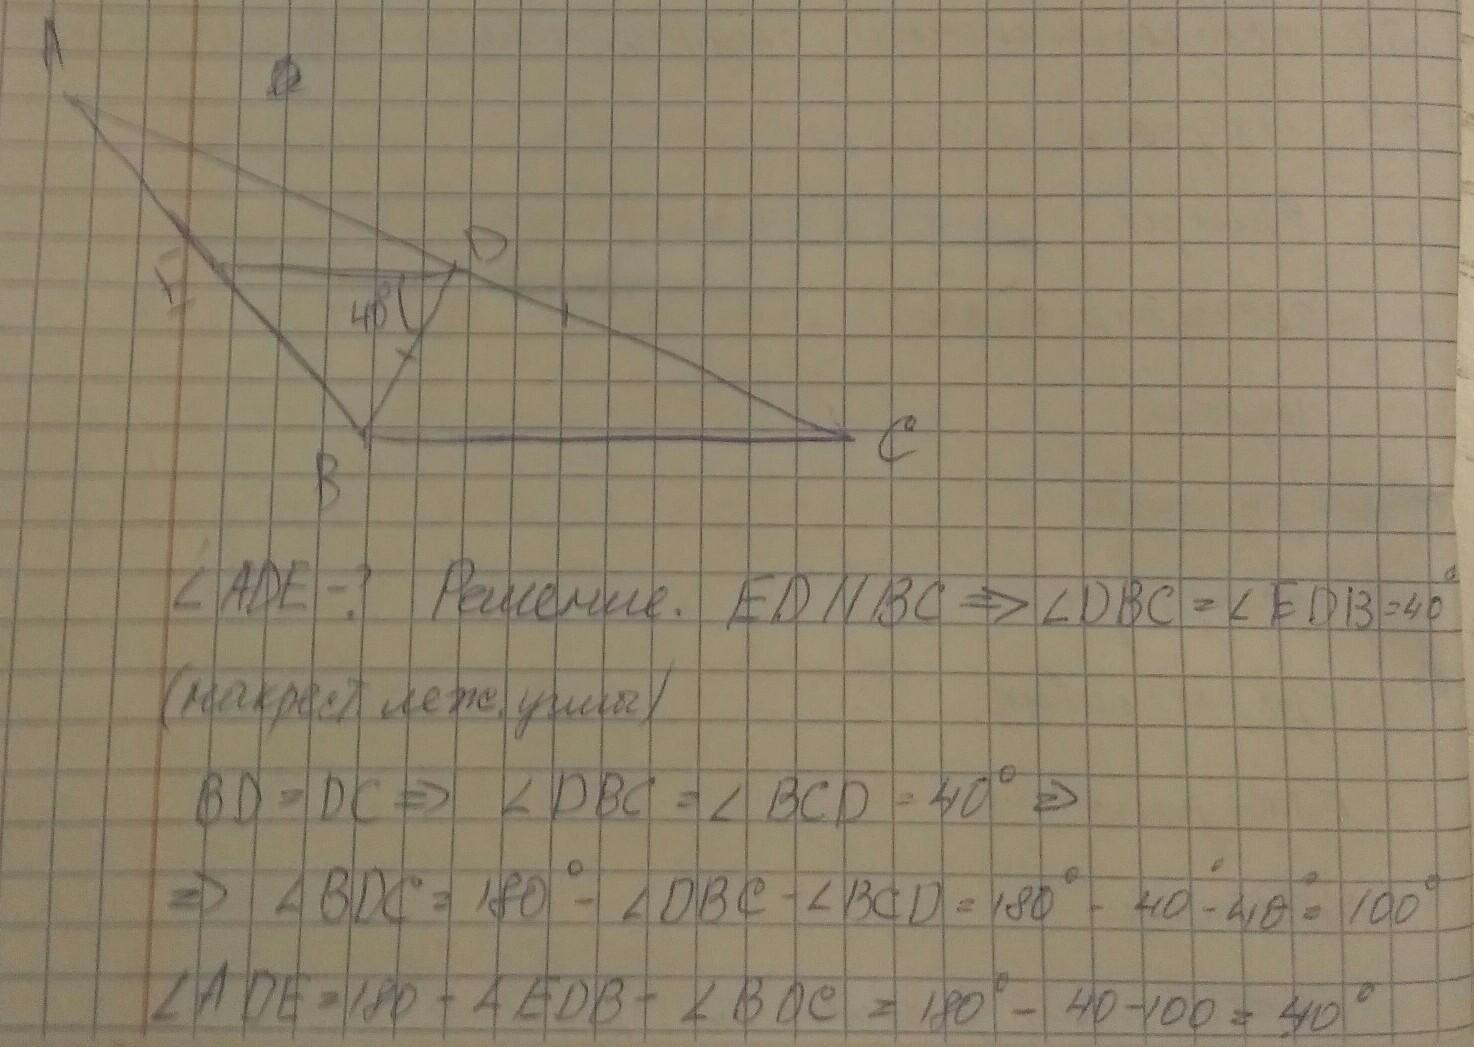 A
D
E
40
B
C
∠ADE-? Решение. ED||BC ⇒ ∠DBC = ∠EDB=40°
(накрест леж. углы)
BD = DC ⇒ ∠DBC = ∠BCD = 40° ⇒
⇒ ∠BDC = 180° - ∠DBC - ∠BCD = 180° - 40° - 40° = 100°
∠ADE = 180 - ∠EDB - ∠BDC = 180° - 40 - 100 = 40°